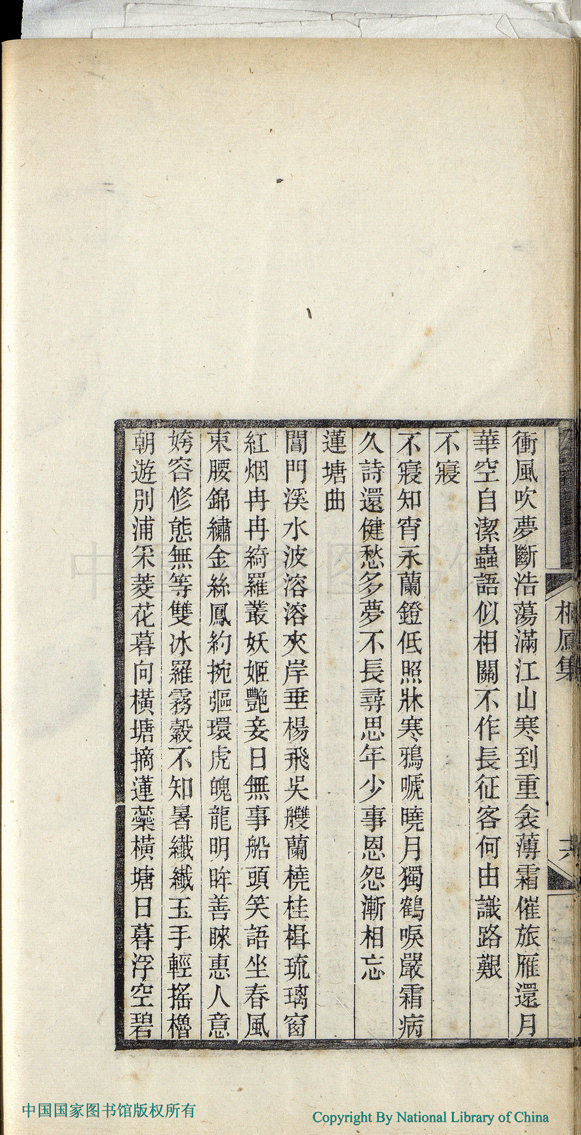 桐鳳集
六
衝風吹夢斷浩蕩滿江山寒到重衾薄霜催旅雁還月
華空自潔蟲語似相關不作長征客何由識路艱
不寢
不寢知宵永蘭鐙低照牀寒鴉嗁曉月獨鶴唳嚴霜病
久詩還健愁多夢不長尋思年少事恩怨漸相忘
蓮塘曲
閶門溪水波溶溶夾岸垂楊飛吳艭蘭橈桂楫琉璃窗
紅烟冉冉綺羅叢妖姬豔妾日無事船頭笑語坐春風
束腰錦繡金絲鳳約捥彄環虎魄龍明眸善睞惠人意
姱容修態無等雙冰羅霧縠不知暑纖纖玉手輕搖櫓
朝遊別浦采菱花暮向橫塘摘蓮蘂橫塘日暮浮空碧
中国国家图书馆版权所有
Copyright By National Library of China